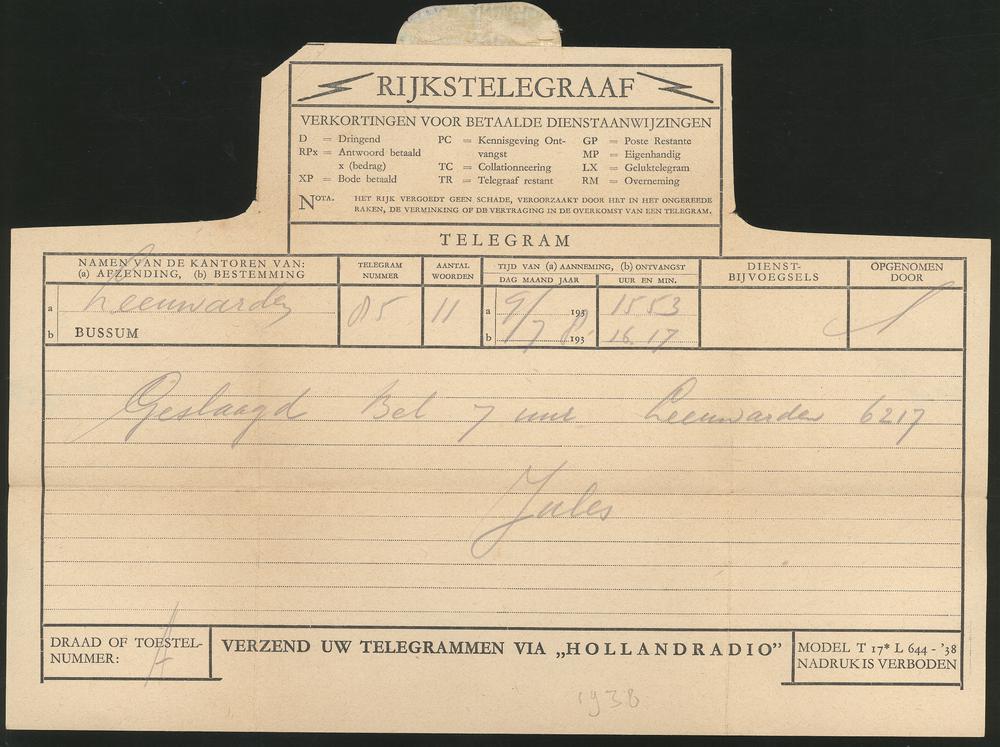 RIJKSTELEGRAAF
VERKORTINGEN VOOR BETAALDE DIENSTAANWIJZINGEN
D = Dringend
RPx = Antwoord betaald
x (bedrag)
XP = Bode betaald
PC = Kennisgeving Ont-
vangst
TC = Collationneering
TR = Telegraaf restant
GP = Poste Restante
MP = Eigenhandig
LX = Geluktelegram
RM = Overneming
NOTA. HET RIJK VERGOEDT GEEN SCHADE, VEROORZAAKT DOOR HET IN HET ONGEREEDE
RAKEN, DE VERMINKING OF DE VERTRAGING IN DE OVERKOMST VAN EEN TELEGRAM.
TELEGRAM
NAMEN VAN DE KANTOREN VAN:
(a) AFZENDING, (b) BESTEMMING
TELEGRAM
NUMMER
AANTAL
WOORDEN
TIJD VAN (a) AANNEMING, (b) ONTVANGST
DAG MAAND JAAR
UUR EN MIN.
DIENST-
BIJVOEGSELS
OPGENOMEN
DOOR
a Leeuwarden 85 11 a 9/ 193 1553
b BUSSUM b /7 8 193 16.17
Geslaagd Bel 7 uur Leeuwarden 6217
Jules
DRAAD OF TOESTEL-
NUMMER:
VERZEND UW TELEGRAMMEN VIA „HOLLANDRADIO”
MODEL T 17* L 644 - '38
NADRUK IS VERBODEN
1938